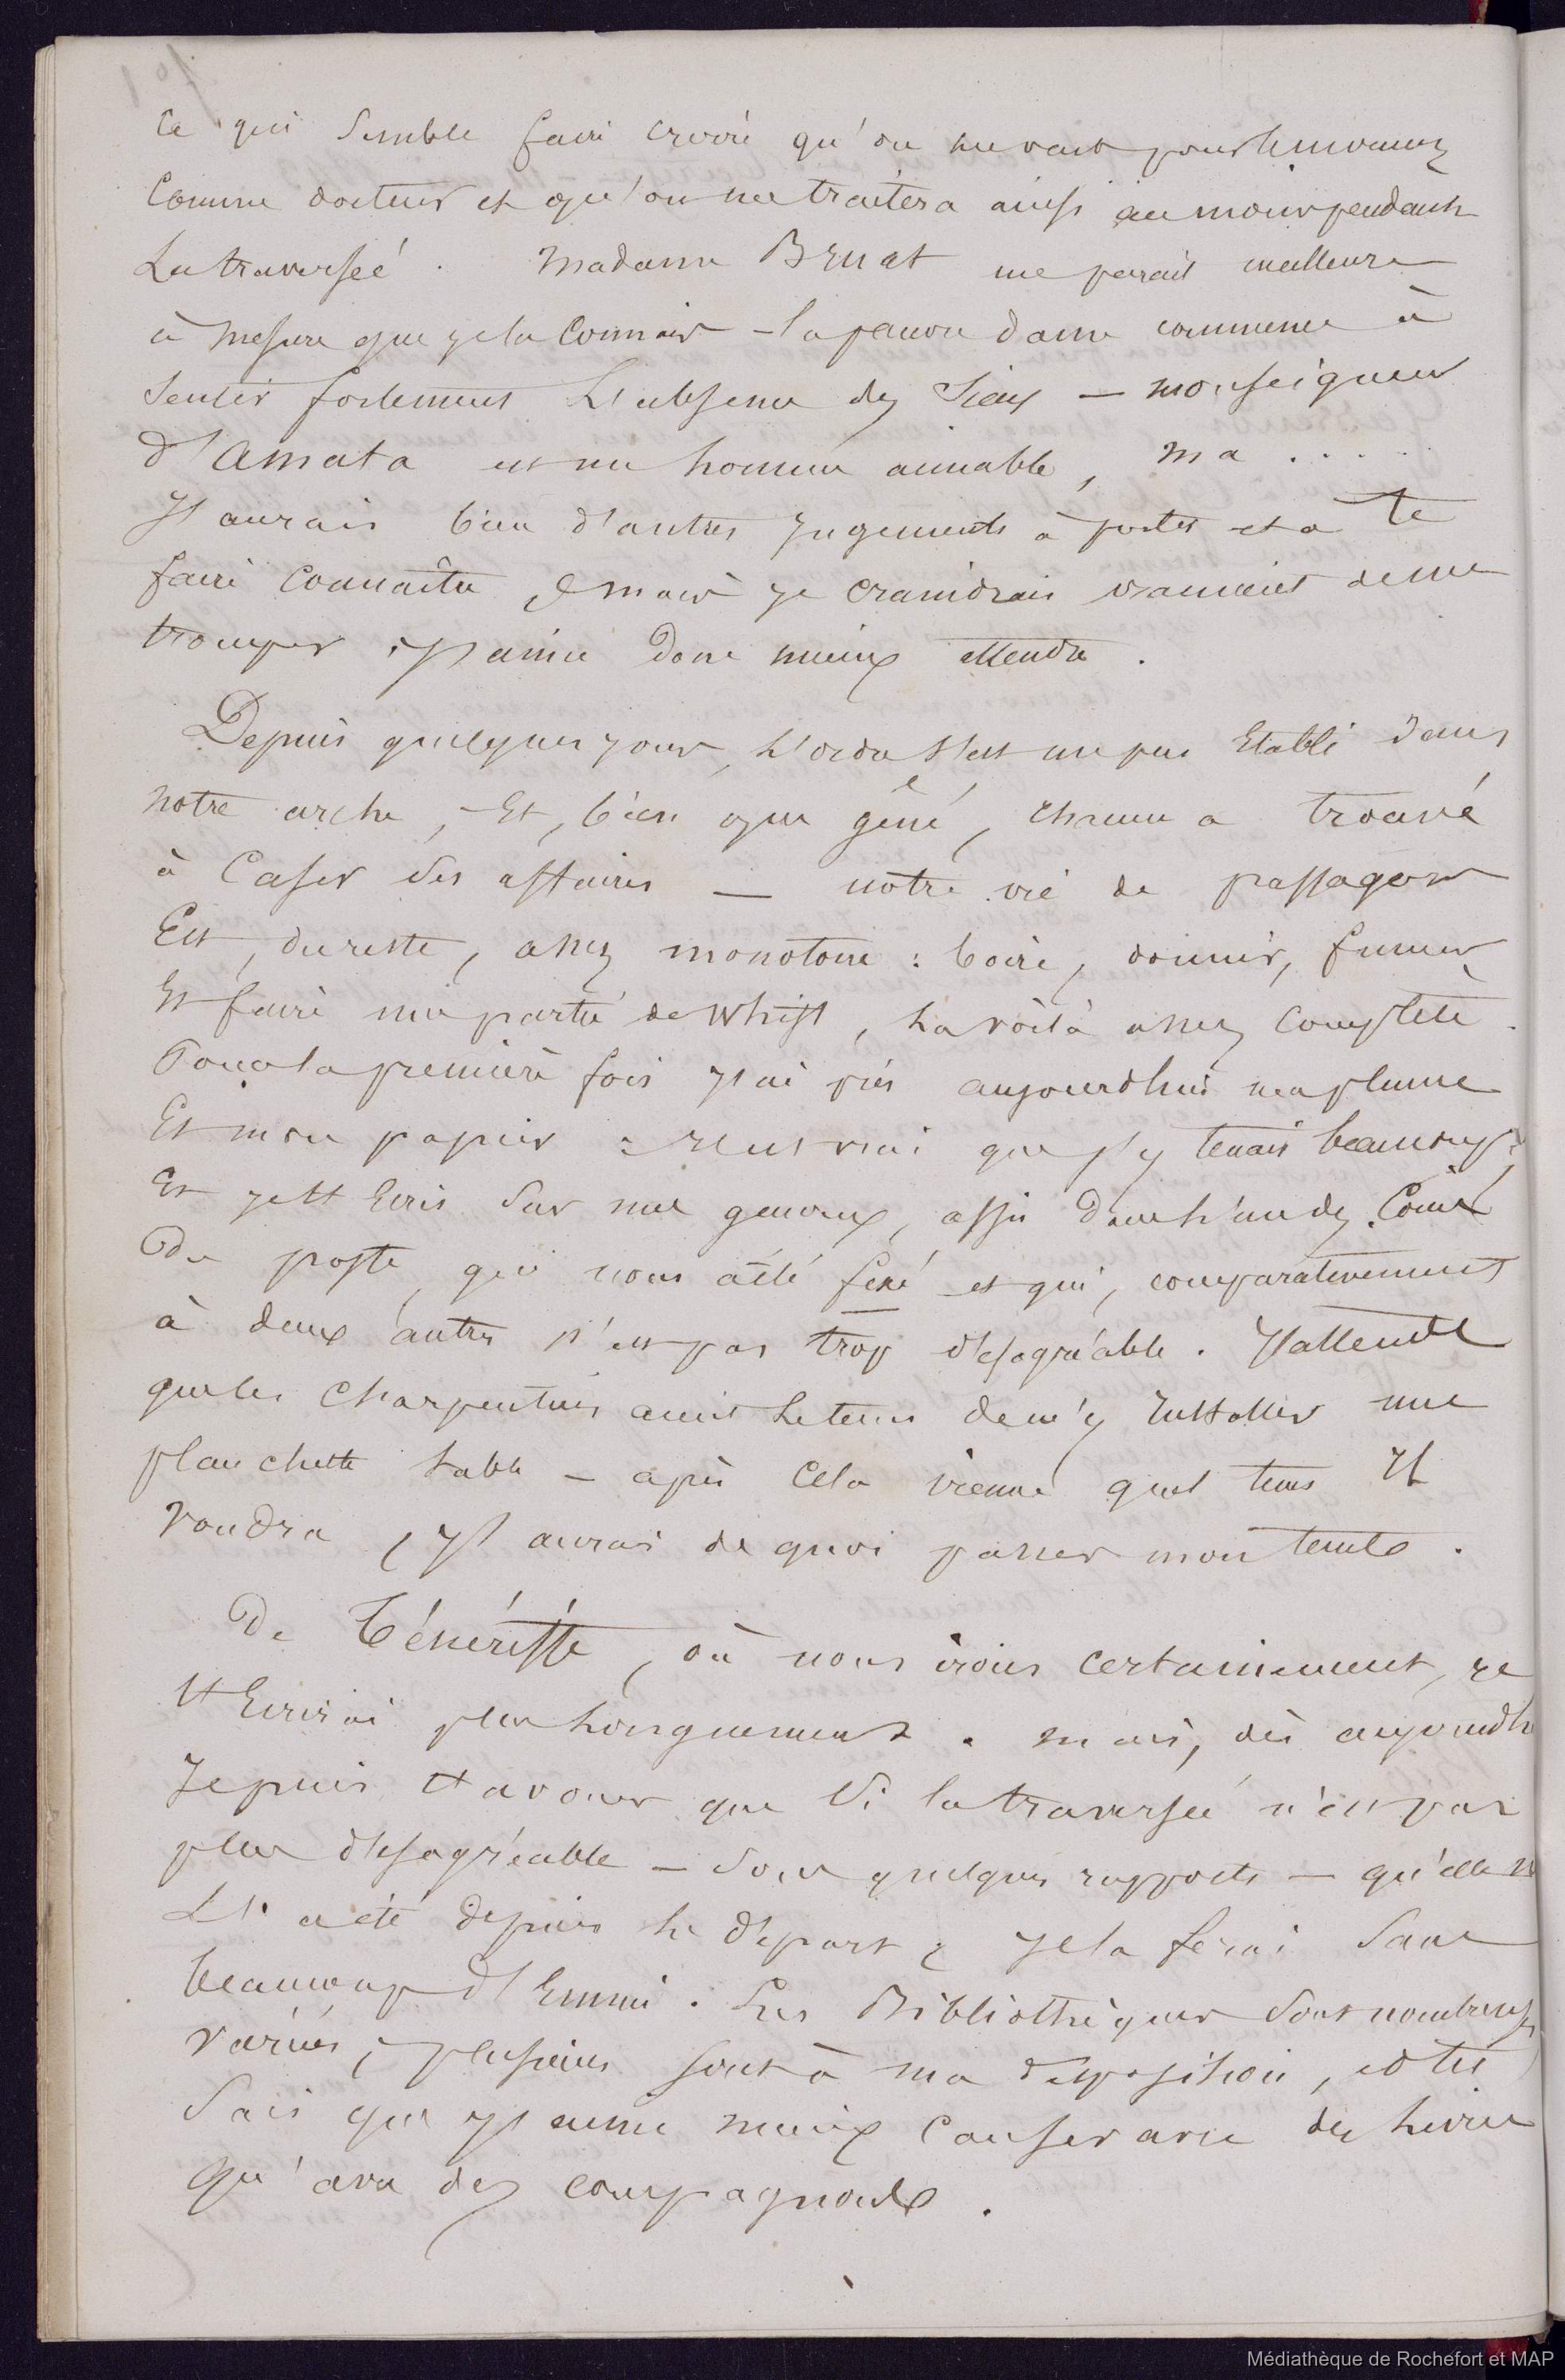 Ce qui semble faire croire qu'on me voit pour
Comme docteur et qu'on me traitera ainsi au moins pendant
La traversée. Madame Bruat me parait meilleure
à mesure que je la connais — la pauvre dame commence à
sentir fortement L'absence des Siens — monseigneur
D'Amata est un homme aimable, ma .....
J'aurais bien d'autres jugements à porter et à te
faire connaître, mais je craindrais vraiment de me
tromper ; j'aime donc mieux attendre.
Depuis quelques jours, L'ordre s'est un peu Etabli dans
notre arche, Et, bien que gêné, chacun a trouvé
à Caser ses affaires — notre vie de passagers
Est, du reste, assez monotone : boire, dormir, fumer
Et faire une partie de Whist, La voilà assez complète.
Pour la première fois j'ai pris aujourdhui ma plume
Et mon papier : il est vrai que j'y tenais beaucoup ;
Et je t'Ecris sur mes genoux, assis dans L'un des Coins
Du poste qui nous a été fixé et qui, comparativement
à deux autres n'est pas trop désagréable. J'attends
que les Charpentiers aient Le tems de m'y Installer une
planchette table — après Cela vienne quel tems Il
voudra, j'aurai de quoi passer mon tems.
De Ténériffe, où nous irons certainement, je
t'Ecrirai plus Longuement. mais, dès aujourdh
Je puis t'avouer que Si la traversée n'est pas
plus désagréable — sous quelques rapports — qu'elle n
L'a été depuis Le départ, je la ferai Sans
beaucoup d'Ennui. Les Bibliothèques Sont nombreuses
variées, plusieurs sont à ma disposition, et tu
Sais que j'aime mieux Causer avec des Livres
qu'avec des compagnons.
Médiathèque de Rochefort et MAP